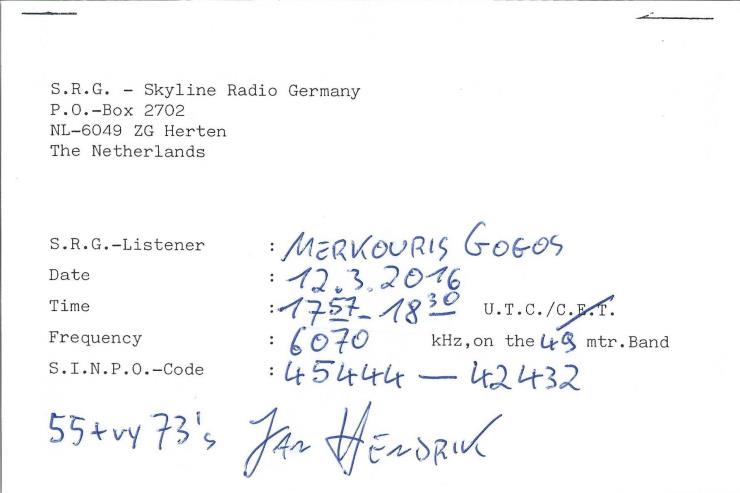 S.R.G. - Skyline Radio Germany
P.O.-Box 2702
NL-6049 ZG Herten
The Netherlands
S.R.G.-Listener : MERKOURIS GOGOS
Date : 12.3.2016
Time : 1757 - 1830 U.T.C./C.E.T.
Frequency : 6070 kHz,on the 49 mtr.Band
S.I.N.P.O.-Code : 45444 — 42432
55 + vy 73's JAN HENDRIK